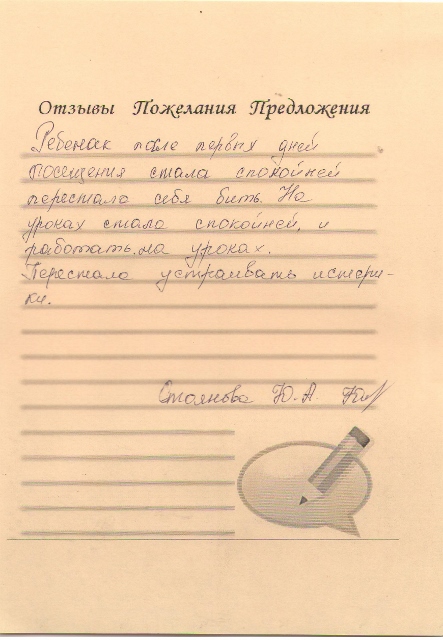 Отзывы Пожелания Предложения
Ребенок после первых дней
посещения стала спокойней
перестала себя бить. На
уроках стала спокойней, и
работать на уроках.
Перестала устраивать истери-
ки.
Стоянова Ю.А.